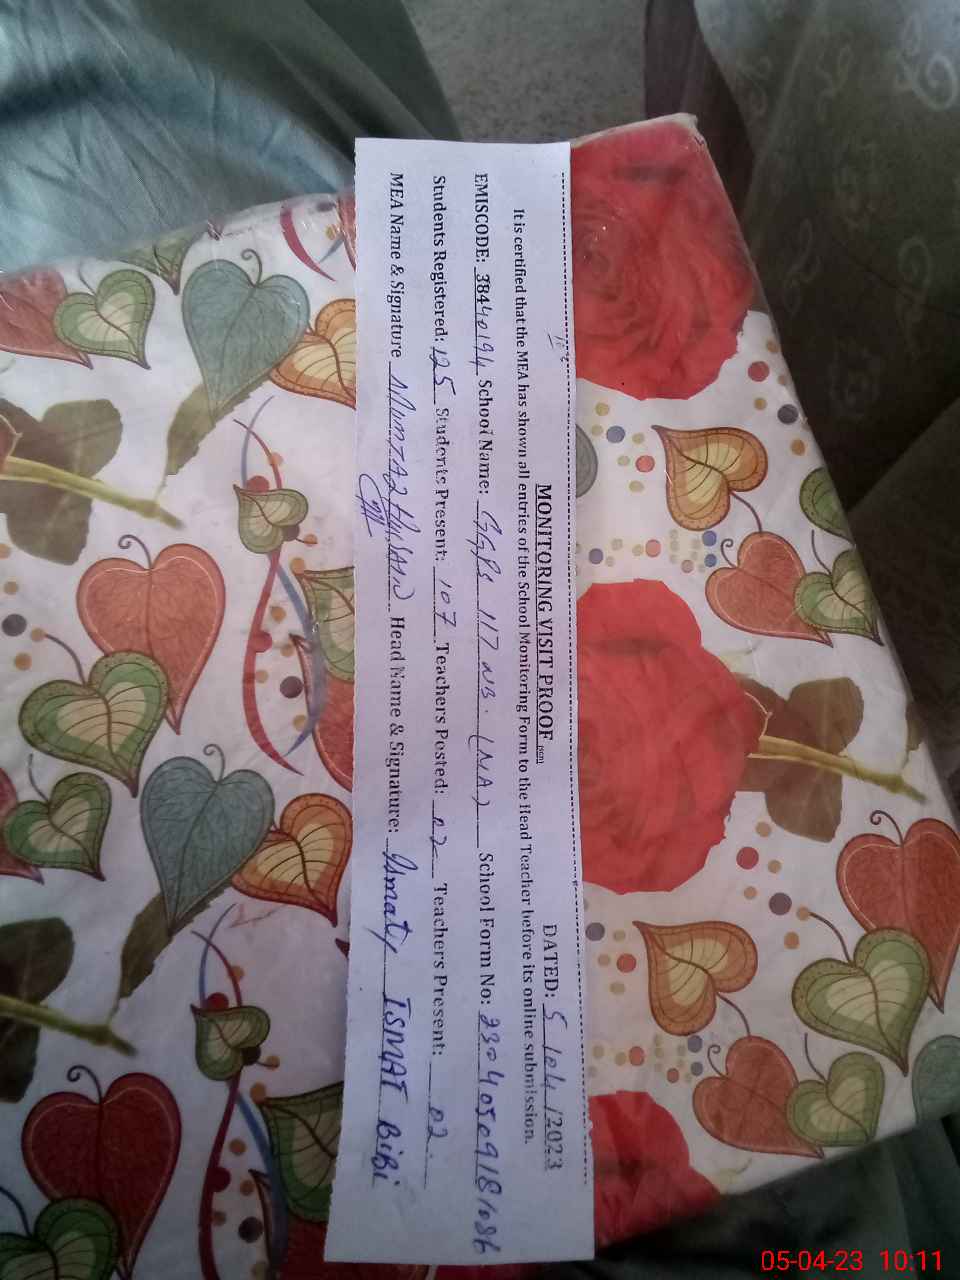 MONITORING VISIT PROOF (SGD) DATED: 5/04/2023
It is certified that the MEA has shown all entries of the School Monitoring Form to the Head Teacher before its online submission.
EMISCODE: 38440194 School Name: GGPS 117 NB. (NA) School Form No:
Students Registered: 125 Students Present: 107 Teachers Posted: 02 Teachers Present: 02
MEA Name & Signature MUMTAZ HUSSAIN Head Name & Signature: Ismat ISMAT BiBi
05-04-23 10:11